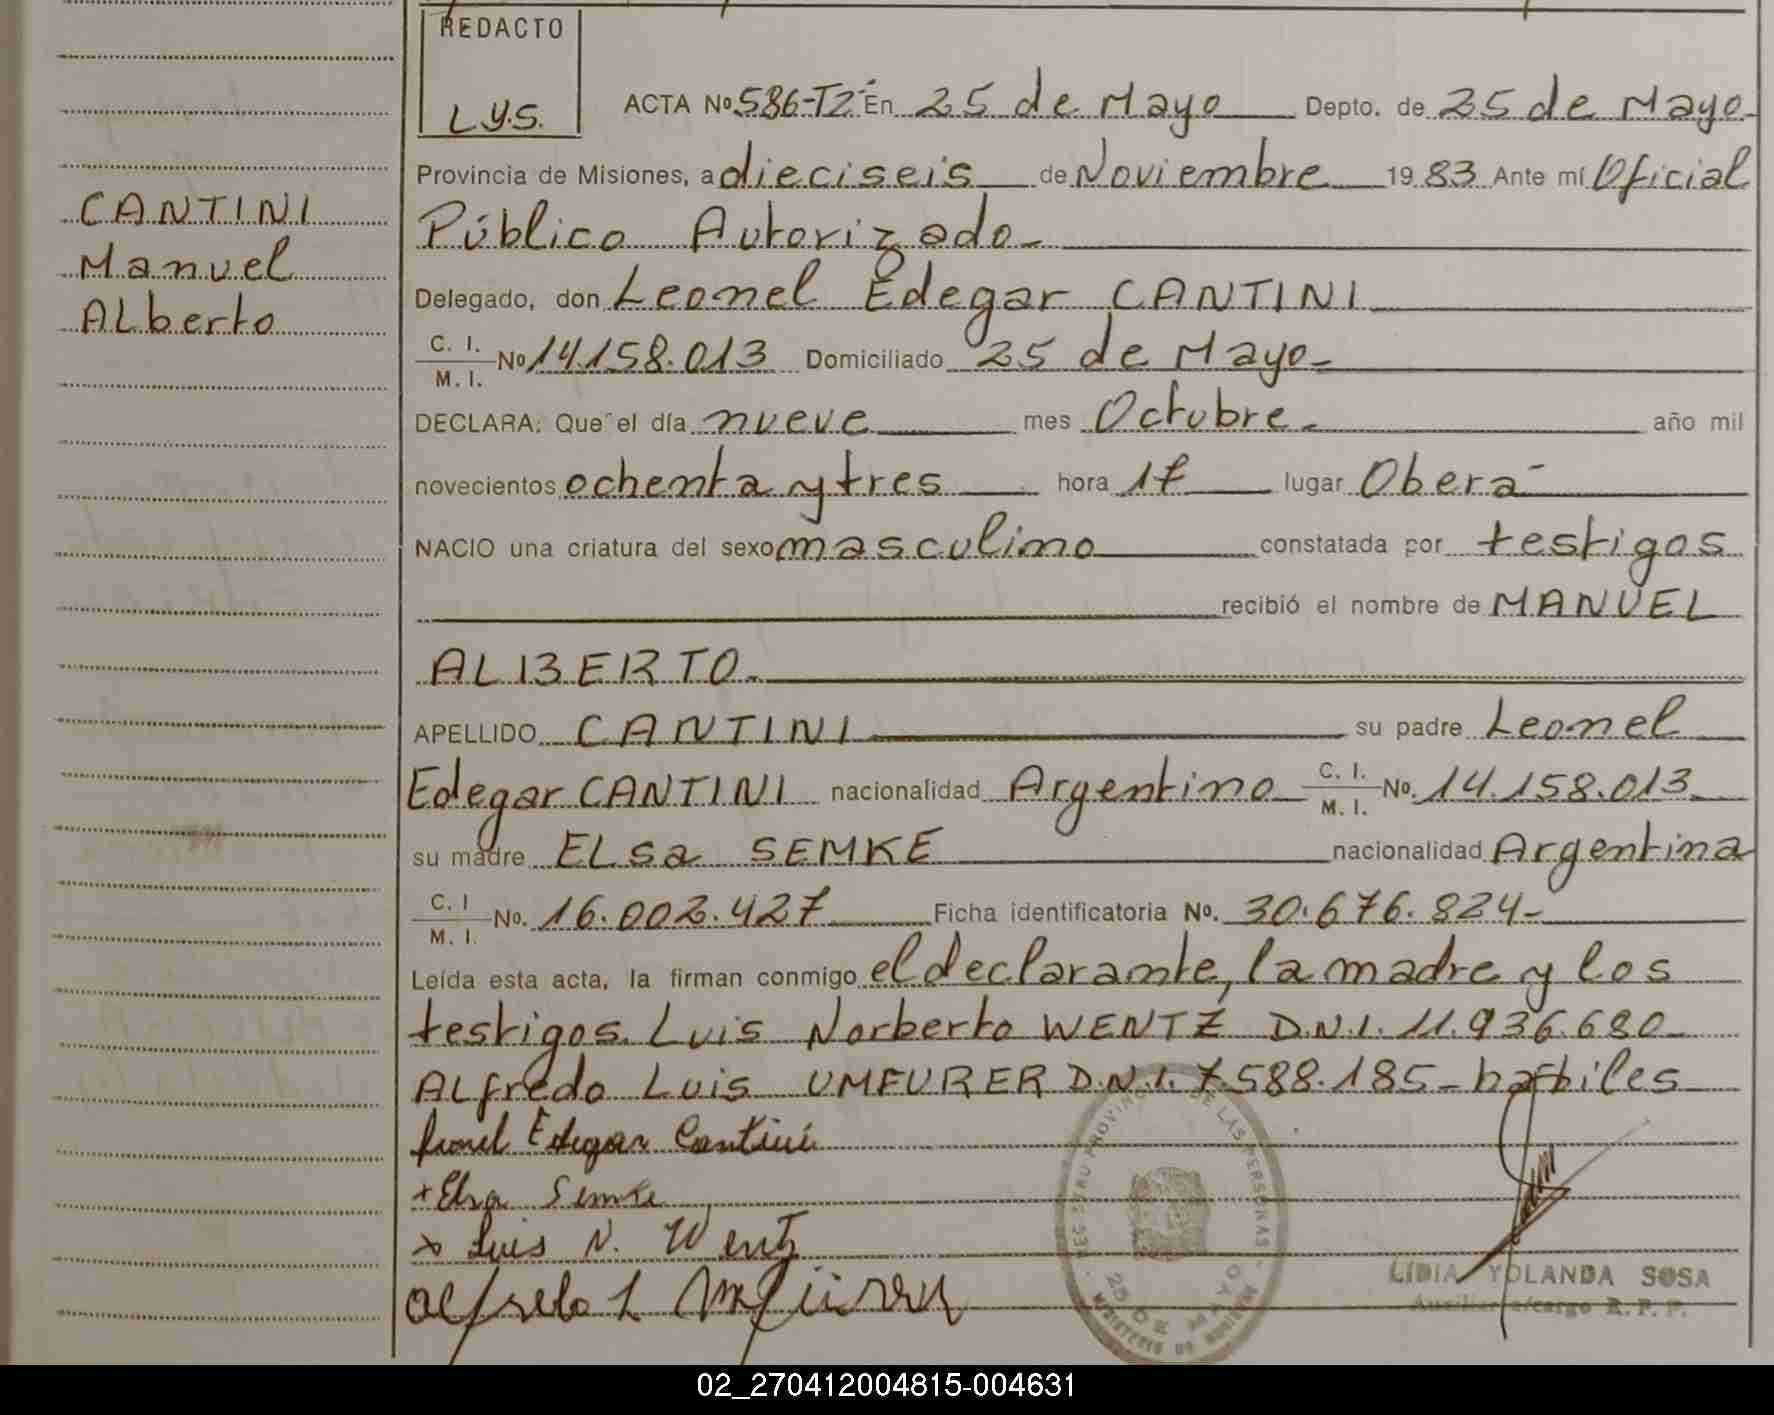 REDACTO
L.Y.S.
ACTA Nº 586-T2º En 25 de Mayo Depto. de 25 de Mayo
Provincia de Misiones, a dieciseis de Noviembre 19 83 Ante mí Oficial
Público Autorizado
Delegado, don Leonel Edegar CANTINI
C. I.
M. I. Nº 14.158.013 Domiciliado 25 de Mayo
DECLARA: Que el día nueve mes Octubre año mil
novecientos ochenta y tres hora 17 lugar Oberá
NACIO una criatura del sexo masculino constatada por testigos
recibió el nombre de MANUEL
ALBERTO
APELLIDO CANTINI su padre Leonel
Edegar CANTINI nacionalidad Argentino C. I. M. I. Nº. 14.158.013
su madre ELSa SEMKE nacionalidad Argentina
C. I M. I. Nº. 16.002.427 Ficha identificatoria Nº. 30.676.824-
Leída esta acta, la firman conmigo el declarante, la madre y los
testigos. Luis Norberto WENTZ D.N.I. 11.936.680-
ALfredo Luis UMFURER D.N.I. 7.588.185- habiles
Leonel Edegar Cantini
+Elsa Semke
x Luis N. Wentz
alfredo L Umfürer
CANTINI
Manuel
ALberto
REGISTRO PROVINCIAL DE LAS PERSONAS
25 DE MAYO
MINISTERIO DE GOBIERNO
LIDIA YOLANDA SOSA
Auxiliar a/cargo R. P. P.
02_270412004815-004631